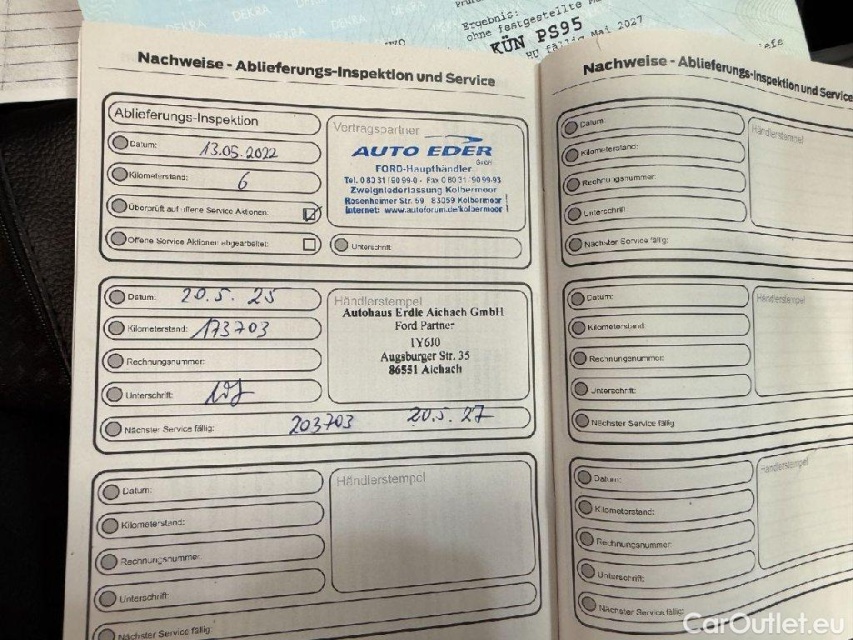 DEKRA
DEKRA
Ergebnis:
ohne festgestellte
KÜN PS95
HU fällig Mai 2027
Nachweise - Ablieferungs-Inspektion und Service
Ablieferungs-Inspektion
Datum: 13.05.2022
Kilometerstand: 6
Überprüft auf offene Service Aktionen:
Offene Service Aktionen abgearbeitet:
Vertragspartner
AUTO EDER
GmbH
FORD-Haupthändler
Tel. 0 80 31 / 90 99-0 · Fax 0 80 31 / 90 99-93
Zweigniederlassung Kolbermoor
Rosenheimer Str. 69 83059 Kolbermoor
Internet: www.autoforum.de/kolbermoor
Unterschrift:
Datum: 20.5.25
Kilometerstand: 173703
Rechnungsnummer:
Unterschrift:
Nächster Service fällig: 203703 20.5.27
Händlerstempel
Autohaus Erdle Aichach GmbH
Ford Partner
1Y6J0
Augsburger Str. 35
86551 Aichach
Datum:
Kilometerstand:
Rechnungsnummer:
Unterschrift:
Nächster Service fällig:
Händlerstempel
Nachweise - Ablieferungs-Inspektion und Service
Datum:
Kilometerstand:
Rechnungsnummer:
Unterschrift:
Nächster Service fällig:
Händlerstempel
Datum:
Kilometerstand:
Rechnungsnummer:
Unterschrift:
Nächster Service fällig:
Händlerstempel
Datum:
Kilometerstand:
Rechnungsnummer:
Unterschrift:
Nächster Service fällig:
Händlerstempel
CarOutlet.eu